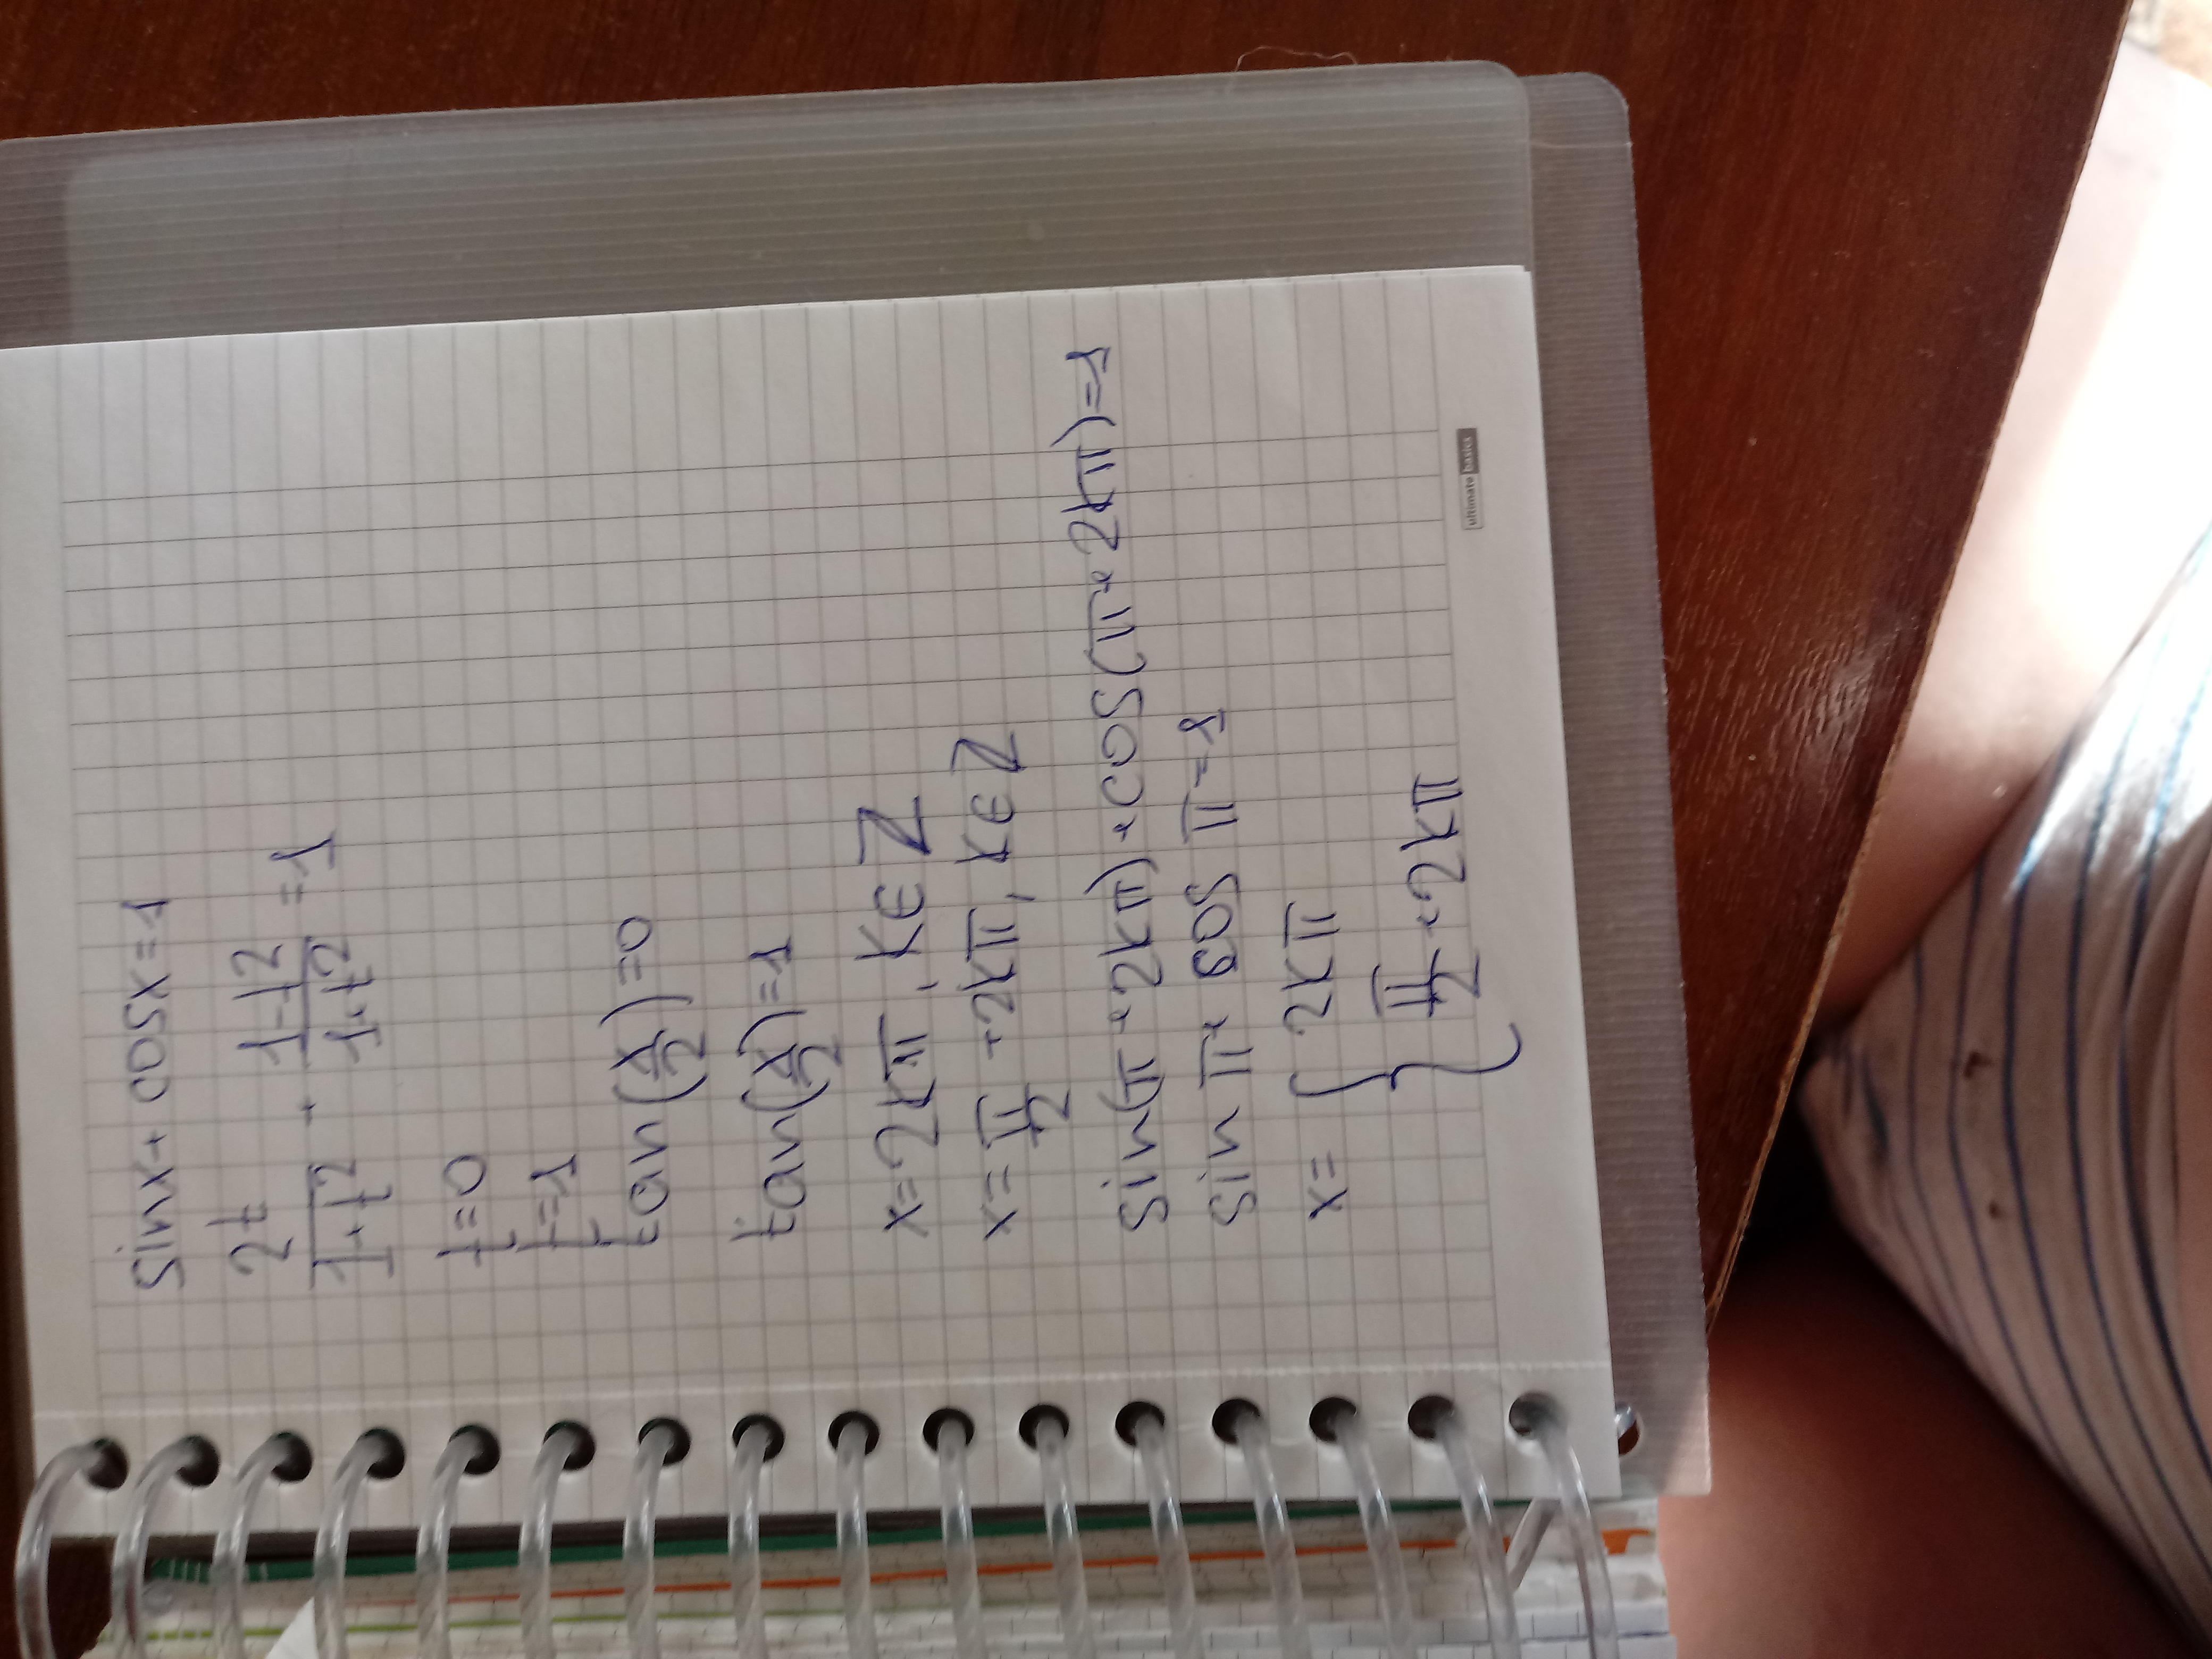 sinx + cosx = 1
2t/(1+t²) + (1-t²)/(1+t²) = 1
t=0
t=1
tan(x/2)=0
tan(x/2)=1
x=2kπ, k∈Z
x=π/2+2kπ, k∈Z
sin(π+2kπ)+cos(π+2kπ)=1
sin π+ cos π=1
x= { 2kπ
π/2+2kπ
ultimate basics